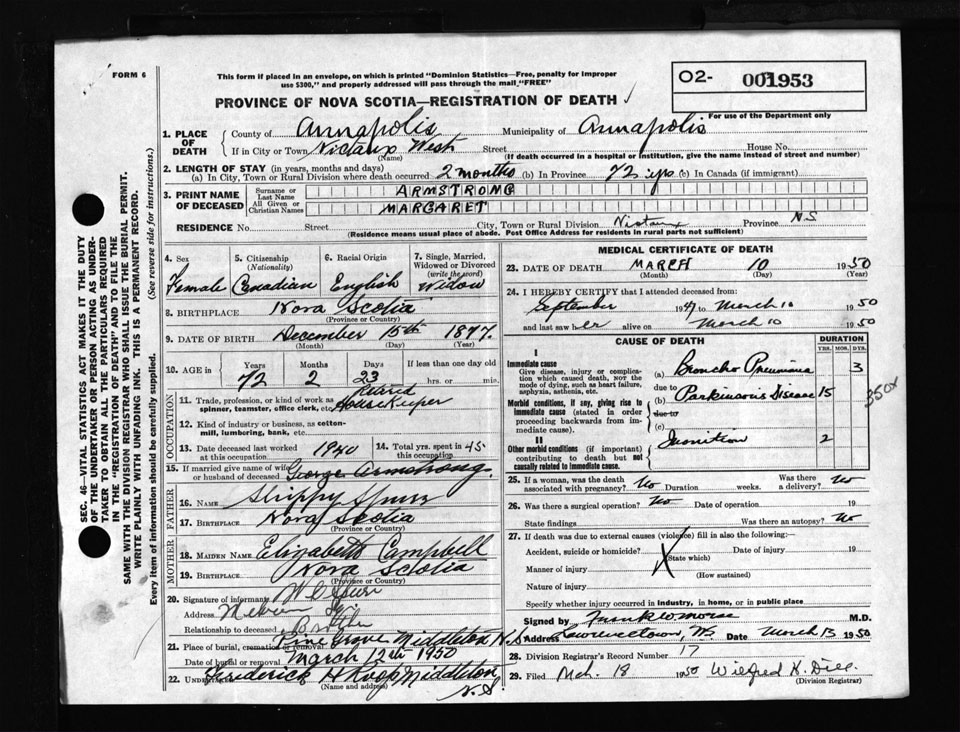 FORM 6
This form if placed in an envelope, on which is printed "Dominion Statistics—Free, penalty for improper
use $300," and properly addressed will pass through the mail "FREE"
O2- 001953
PROVINCE OF NOVA SCOTIA—REGISTRATION OF DEATH
For use of the Department only
1. PLACE OF DEATH
County of Annapolis Municipality of Annapolis
If in City or Town Nictaux West Street House No.
(Name) (If death occurred in a hospital or institution, give the name instead of street and number)
2. LENGTH OF STAY (in years, months and days)
(a) In City, Town or Rural Division where death occurred 2 months (b) In Province 72 yrs (c) In Canada (if immigrant)
3. PRINT NAME OF DECEASED
Surname or Last Name ARMSTRONG
All Given or Christian Names MARGARET
RESIDENCE No. Street City, Town or Rural Division Nictaux Province N.S
(Residence means usual place of abode. Post Office Address for residents in rural parts not sufficient)
4. Sex Female
5. Citizenship (Nationality) Canadian
6. Racial Origin English
7. Single, Married, Widowed or Divorced (write the word) Widow
8. BIRTHPLACE Nova Scotia
(Province or Country)
9. DATE OF BIRTH December 15th 1877.
(Month) (Day) (Year)
10. AGE in Years 72 Months 2 Days 23 If less than one day old hrs. or min.
OCCUPATION
11. Trade, profession, or kind of work as spinner, teamster, office clerk, etc. Retired Housekeeper
12. Kind of industry or business, as cotton-mill, lumbering, bank, etc.
13. Date deceased last worked at this occupation 1940
14. Total yrs. spent in this occupation 45
15. If married give name of wife or husband of deceased George Armstrong
FATHER
16. NAME Spurr
17. BIRTHPLACE Nova Scotia
(Province or Country)
MOTHER
18. MAIDEN NAME Elizabeth Campbell
19. BIRTHPLACE Nova Scotia
(Province or Country)
20. Signature of informant Spurr
Address
Relationship to deceased Brother
21. Place of burial, cremation or removal Pine Grove Middleton N.S
Date of burial or removal March 12th 1950
22. UNDERTAKER Frederick H Roop Middleton
(Name and address) N.S
MEDICAL CERTIFICATE OF DEATH
23. DATE OF DEATH MARCH 10 1950
(Month) (Day) (Year)
24. I HEREBY CERTIFY that I attended deceased from:
September 1947 to March 10 1950
and last saw her alive on March 10 1950
CAUSE OF DEATH
DURATION
YRS. MOS. DYS.
I
Immediate cause
Give disease, injury or complication which caused death, not the mode of dying, such as heart failure, asphyxia, asthenia, etc.
(a) Broncho Pneumonia 3
due to
Morbid conditions, if any, giving rise to immediate cause (stated in order proceeding backwards from immediate cause).
(b) Parkinson's Disease 15
due to
(c)
350x
II
Other morbid conditions (if important) contributing to death but not causally related to immediate cause.
Inanition 2
25. If a woman, was the death associated with pregnancy? No Duration weeks. Was there a delivery? No
26. Was there a surgical operation? No Date of operation 19
State findings Was there an autopsy? No
27. If death was due to external causes (violence) fill in also the following:—
Accident, suicide or homicide? Date of injury 19
(State which)
Manner of injury
(How sustained)
Nature of injury
Specify whether injury occurred in industry, in home, or in public place
Signed by Frank Morse M.D.
Address Lawrencetown, NS Date March 13 1950
28. Division Registrar's Record Number 17
29. Filed Mch. 18 1950 Wilfred K. Dill
(Division Registrar)
SEC. 46—VITAL STATISTICS ACT MAKES IT THE DUTY
OF THE UNDERTAKER OR PERSON ACTING AS UNDER-
TAKER TO OBTAIN ALL THE PARTICULARS REQUIRED
IN THE "REGISTRATION OF DEATH" AND TO FILE THE
SAME WITH THE DIVISION REGISTRAR WHO SHALL ISSUE THE BURIAL PERMIT.
WRITE PLAINLY WITH UNFADING INK. THIS IS A PERMANENT RECORD.
Every item of information should be carefully supplied. (See reverse side for instructions.)